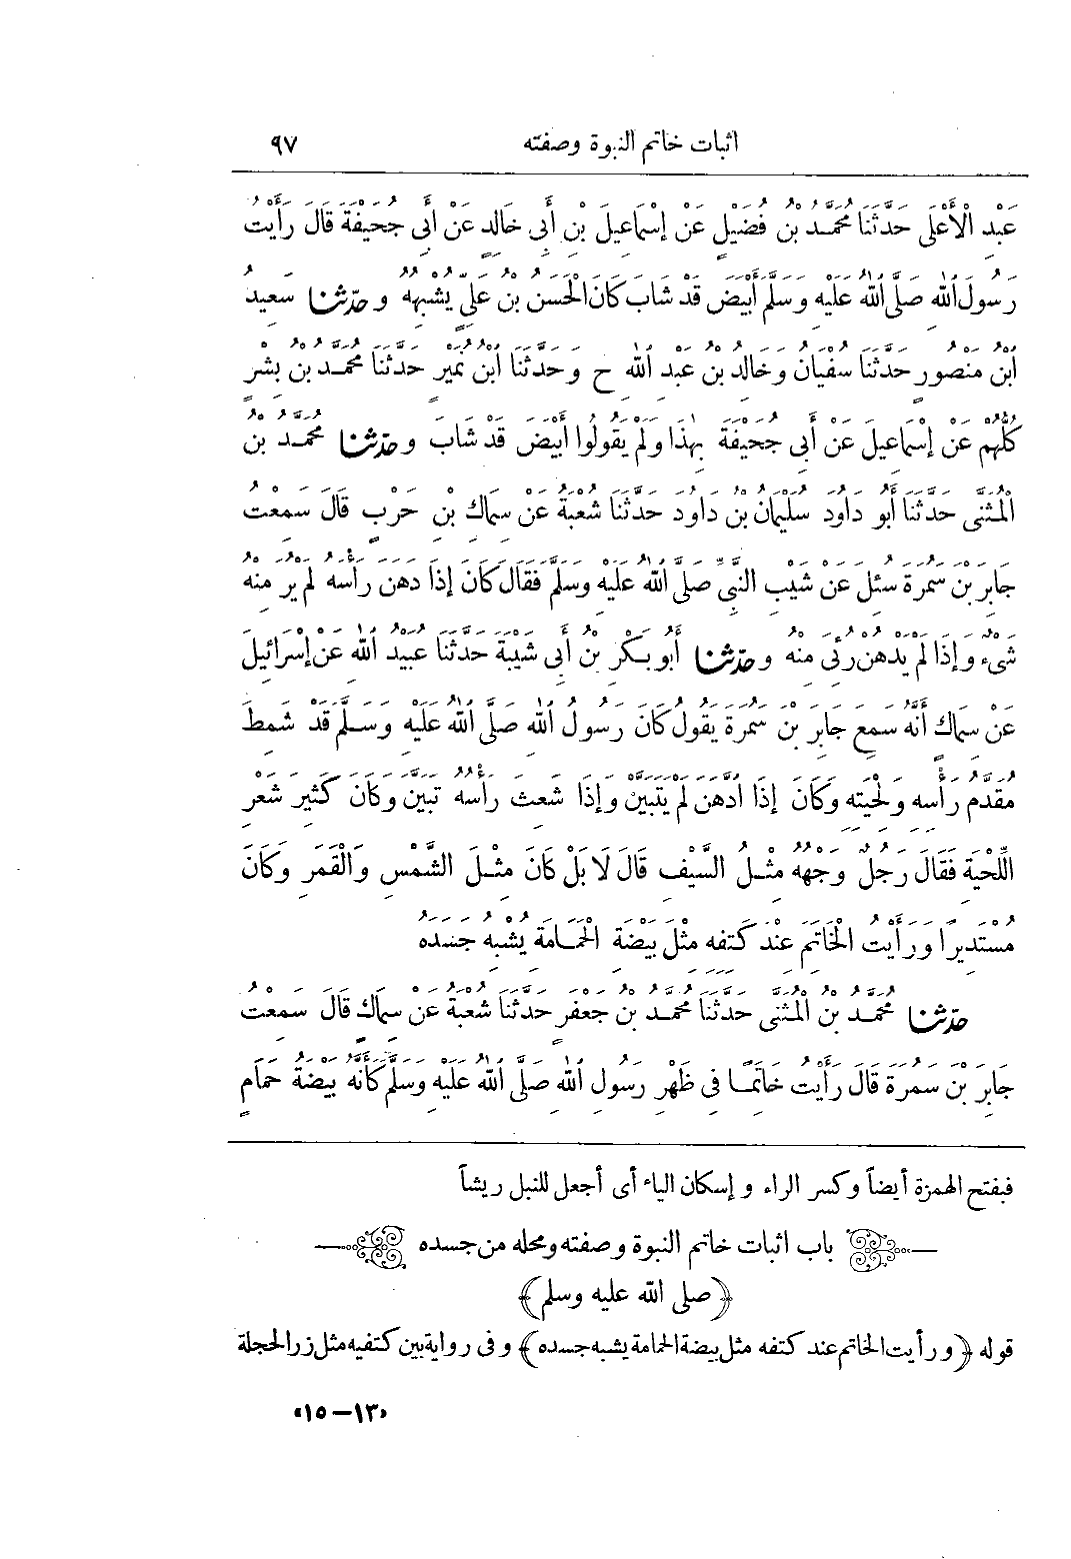 اثبات خاتم النبوة وصفته ٩٧
عَبْدِ الْأَعْلَى حَدَّثَنَا مُحَمَّدُ بْنُ فُضَيْلٍ عَنْ إِسْمَاعِيلَ بْنِ أَبِي خَالِدٍ عَنْ أَبِي جُحَيْفَةَ قَالَ رَأَيْتُ
رَسُولَ اللهِ صَلَّى اللهُ عَلَيْهِ وَسَلَّمَ أَبْيَضَ قَدْ شَابَ كَانَ الْحَسَنُ بْنُ عَلِيٍّ يُشْبِهُهُ وحدثنا سَعِيدُ
ابْنُ مَنْصُورٍ حَدَّثَنَا سُفْيَانُ وَخَالِدُ بْنُ عَبْدِ اللهِ ح وَحَدَّثَنَا ابْنُ نُمَيْرٍ حَدَّثَنَا مُحَمَّدُ بْنُ بِشْرٍ
كُلُّهُمْ عَنْ إِسْمَاعِيلَ عَنْ أَبِي جُحَيْفَةَ بِهٰذَا وَلَمْ يَقُولُوا أَبْيَضَ قَدْ شَابَ وحدثنا مُحَمَّدُ بْنُ
الْمُثَنَّى حَدَّثَنَا أَبُو دَاوُدَ سُلَيْمَانُ بْنُ دَاوُدَ حَدَّثَنَا شُعْبَةُ عَنْ سِمَاكِ بْنِ حَرْبٍ قَالَ سَمِعْتُ
جَابِرَ بْنَ سَمُرَةَ سُئِلَ عَنْ شَيْبِ النَّبِيِّ صَلَّى اللهُ عَلَيْهِ وَسَلَّمَ فَقَالَ كَانَ إِذَا دَهَنَ رَأْسَهُ لَمْ يُرَ مِنْهُ
شَىْءٌ وَإِذَا لَمْ يَدْهُنْ رُئِيَ مِنْهُ وحدثنا أَبُو بَكْرِ بْنُ أَبِي شَيْبَةَ حَدَّثَنَا عُبَيْدُ اللهِ عَنْ إِسْرَائِيلَ
عَنْ سِمَاكٍ أَنَّهُ سَمِعَ جَابِرَ بْنَ سَمُرَةَ يَقُولُ كَانَ رَسُولُ اللهِ صَلَّى اللهُ عَلَيْهِ وَسَلَّمَ قَدْ شَمِطَ
مُقَدَّمُ رَأْسِهِ وَلِحْيَتِهِ وَكَانَ إِذَا ادَّهَنَ لَمْ يَتَبَيَّنْ وَإِذَا شَعِثَ رَأْسُهُ تَبَيَّنَ وَكَانَ كَثِيرَ شَعْرِ
اللِّحْيَةِ فَقَالَ رَجُلٌ وَجْهُهُ مِثْلُ السَّيْفِ قَالَ لَا بَلْ كَانَ مِثْلَ الشَّمْسِ وَالْقَمَرِ وَكَانَ
مُسْتَدِيرًا وَرَأَيْتُ الْخَاتَمَ عِنْدَ كَتِفِهِ مِثْلَ بَيْضَةِ الْحَمَامَةِ يُشْبِهُ جَسَدَهُ
حدثنا مُحَمَّدُ بْنُ الْمُثَنَّى حَدَّثَنَا مُحَمَّدُ بْنُ جَعْفَرٍ حَدَّثَنَا شُعْبَةُ عَنْ سِمَاكٍ قَالَ سَمِعْتُ
جَابِرَ بْنَ سَمُرَةَ قَالَ رَأَيْتُ خَاتَمًا فِي ظَهْرِ رَسُولِ اللهِ صَلَّى اللهُ عَلَيْهِ وَسَلَّمَ كَأَنَّهُ بَيْضَةُ حَمَامٍ
فبفتح الهمزة أيضاً وكسر الراء وإسكان الياء أى أجعل للنبل ريشاً
باب اثبات خاتم النبوة وصفته ومحله من جسده
﴿صلى الله عليه وسلم﴾
قوله ﴿ورأيت الخاتم عند كتفه مثل بيضة الحمامة يشبه جسده﴾ وفى رواية بين كتفيه مثل زر الحجلة
«١٣ — ١٥»